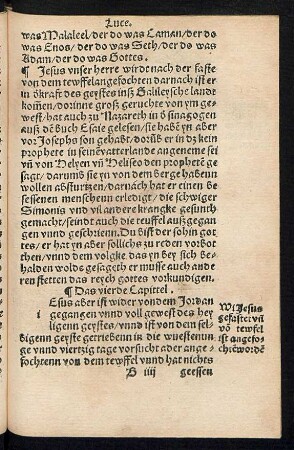 Luce.
was Malaleel/der do was Caman/der do
was Enos/der do was Seth/der do was
Adam/der do was Gottes.
¶ Jesus vnser herre wirdt nach der faste
von dem tewffel angefochten darnach ist er
in d̕ krafft des geystes insz Galileysche landt
kom̃en/dorinne grosz geruchte von ym ge⸗
west/hat auch zu Nazareth in d̕ sinagogen
ausz dẽ buch Esaie gelesen/sie habẽ yn aber
vor Josephs son gehabt/dorũb er in dz kein
prophete in seinẽ vatterlande angeneme sei
vñ von Helyen vñ Heliseo den prophetẽ ge
sagt/darumb sie yn von dem berge haben n
wollen absturtzen/darnach hat er einen be
sessenen menschenn erledigt/die schwiger
Simonis vnd vil andere krangke gesunth
gemacht/seindt auch die teuffel auszgegan
gen vnnd geschrienn. Du bist der sohin got
tes/er hat yn aber sollichs zu reden vorbot
then/vnnd dem volgke das yn bey sich be⸗
halden wolds gesageth er musse auch ande
ren stetten das reych gottes vorkundigen.
¶ Das vierde Capittel.
Esus aber ist wider von dem Jordan
i gegangen vnnd voll gewest des hey
ligenn geystes/vnnd ist von dem sel⸗
bigenn geyste getriebenn in die wuestenun
ge vnnd viertzig tage vorsucht ader ange⸗
fochtenn von dem tewffel vnnd hat nichts
B iiij geessen
Wi Jesus
gefastet vñ
võ tewfel
ist angefo⸗
chtẽ wordẽ